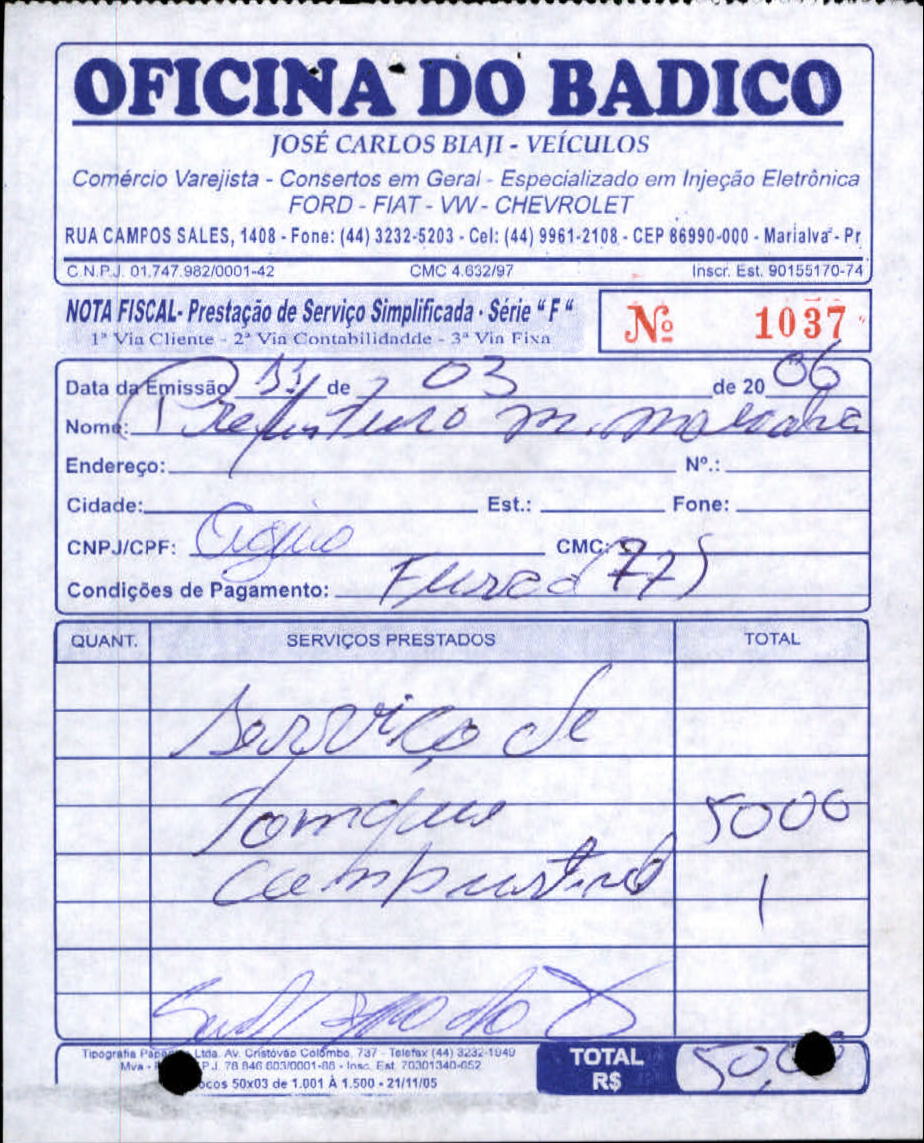 OFICINA DO BADICO
JOSÉ CARLOS BIAJI - VEÍCULOS
Comércio Varejista - Consertos em Geral - Especializado em Injeção Eletrônica
FORD - FIAT - VW - CHEVROLET
RUA CAMPOS SALES, 1408 - Fone: (44) 3232-5203 - Cel: (44) 9961-2108 - CEP 86990-000 - Marialva - Pr
C.N.P.J. 01.747.982/0001-42 CMC 4.632/97 Inscr. Est. 90155170-74
NOTA FISCAL - Prestação de Serviço Simplificada - Série "F"
Nº 1037
1ª Via Cliente - 2ª Via Contabilidadde - 3ª Via Fixa
Data da Emissão de 03 de 20 06
Nome: Prefeitura M.
Endereço: Nº.:
Cidade: Est.: Fone:
CNPJ/CPF: CMC:
Condições de Pagamento: (77)
QUANT. SERVIÇOS PRESTADOS TOTAL
Serviço de
Tanque 5000
Combustivel
Tipografia Ltda. Av. Cristóvão Colombo, 737 - Telefax (44) 3232-1040
Mva - P.J. 78 846 603/0001-88 - Insc. Est. 70301340-652
ocos 50x03 de 1.001 À 1.500 - 21/11/05
TOTAL R$ 50,00